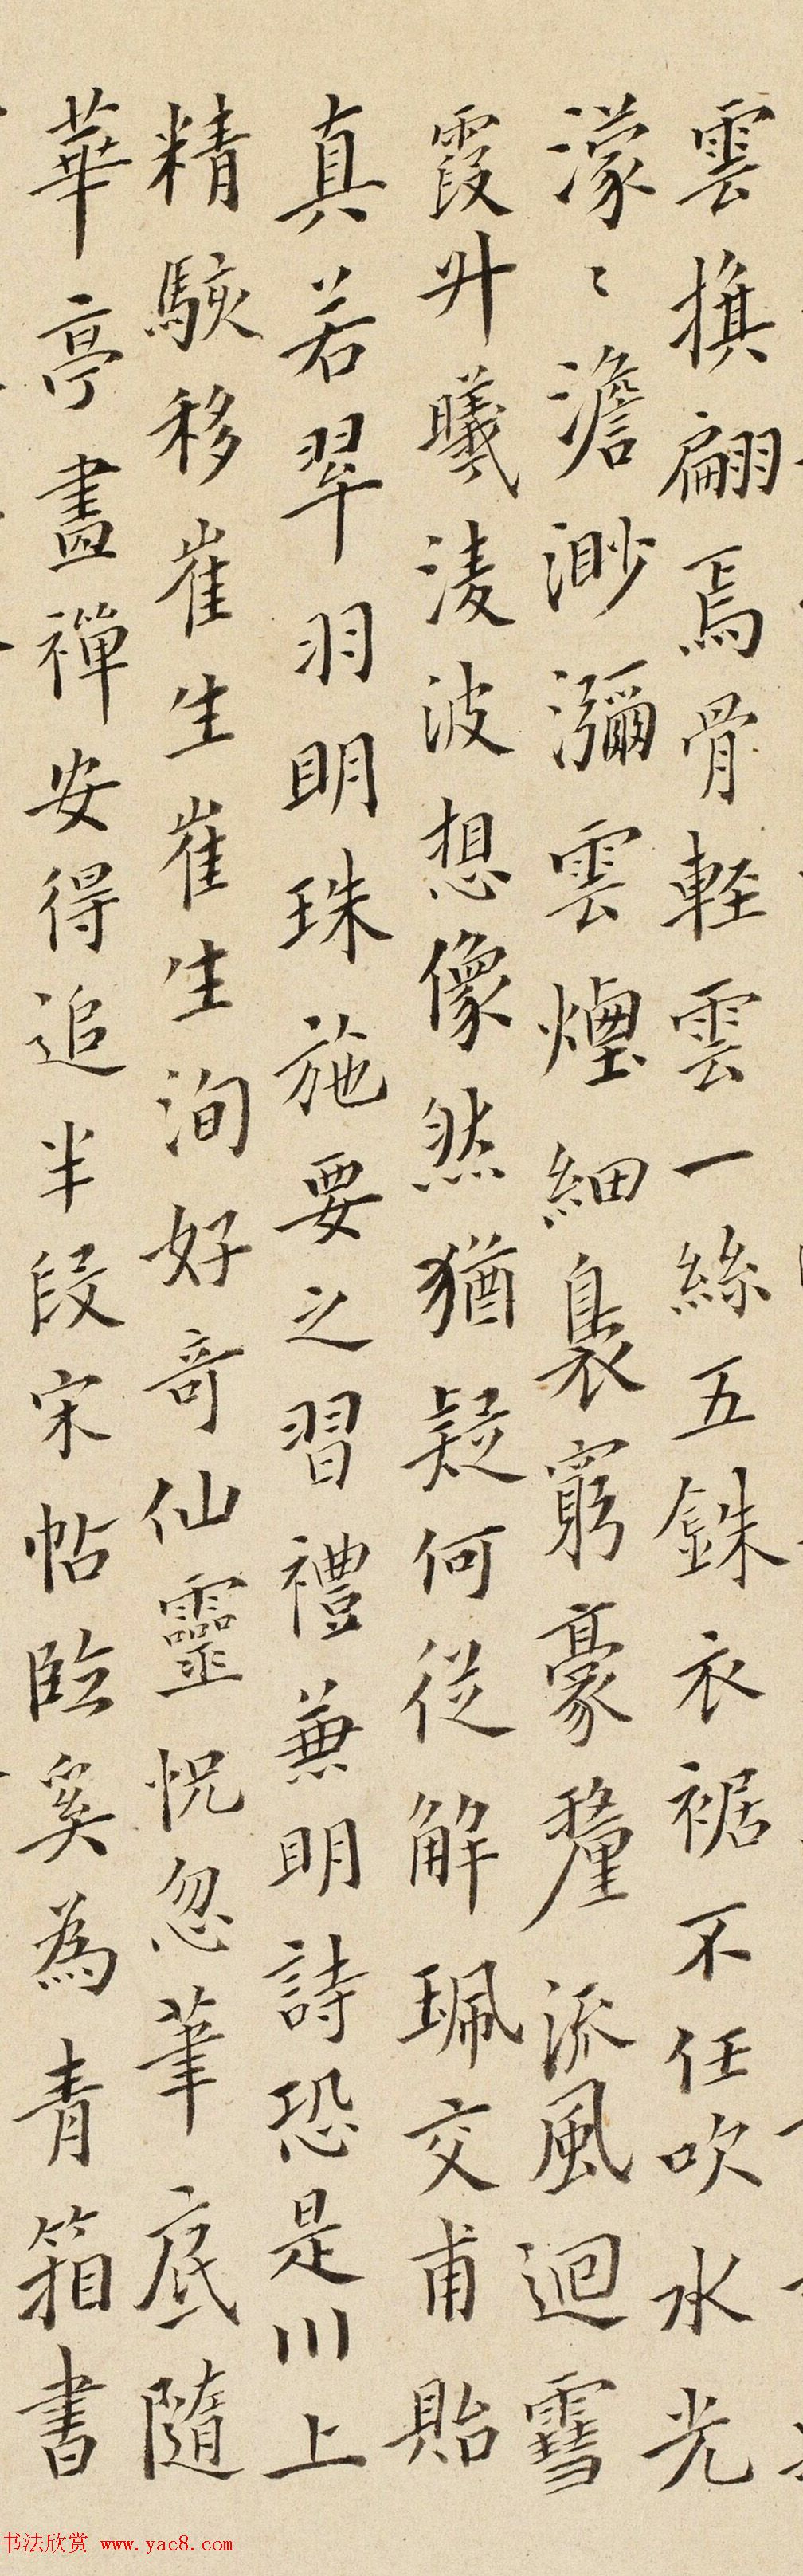 雲㩀翩焉骨輕雲一絲五銖衣裾不任吹水光
濛〻澹渺瀰雲煙細裊窮豪釐流風迴雪
霞升曦淩波想像然猶疑何從解珮交甫貽
真若翠羽明珠施要之習禮兼明詩恐是川上
精駭移崔生崔生洵好奇仙靈怳忽筆底隨
華亭畫禪安得追半段宋帖臨奚為青箱書
书法欣赏 www.yac8.com